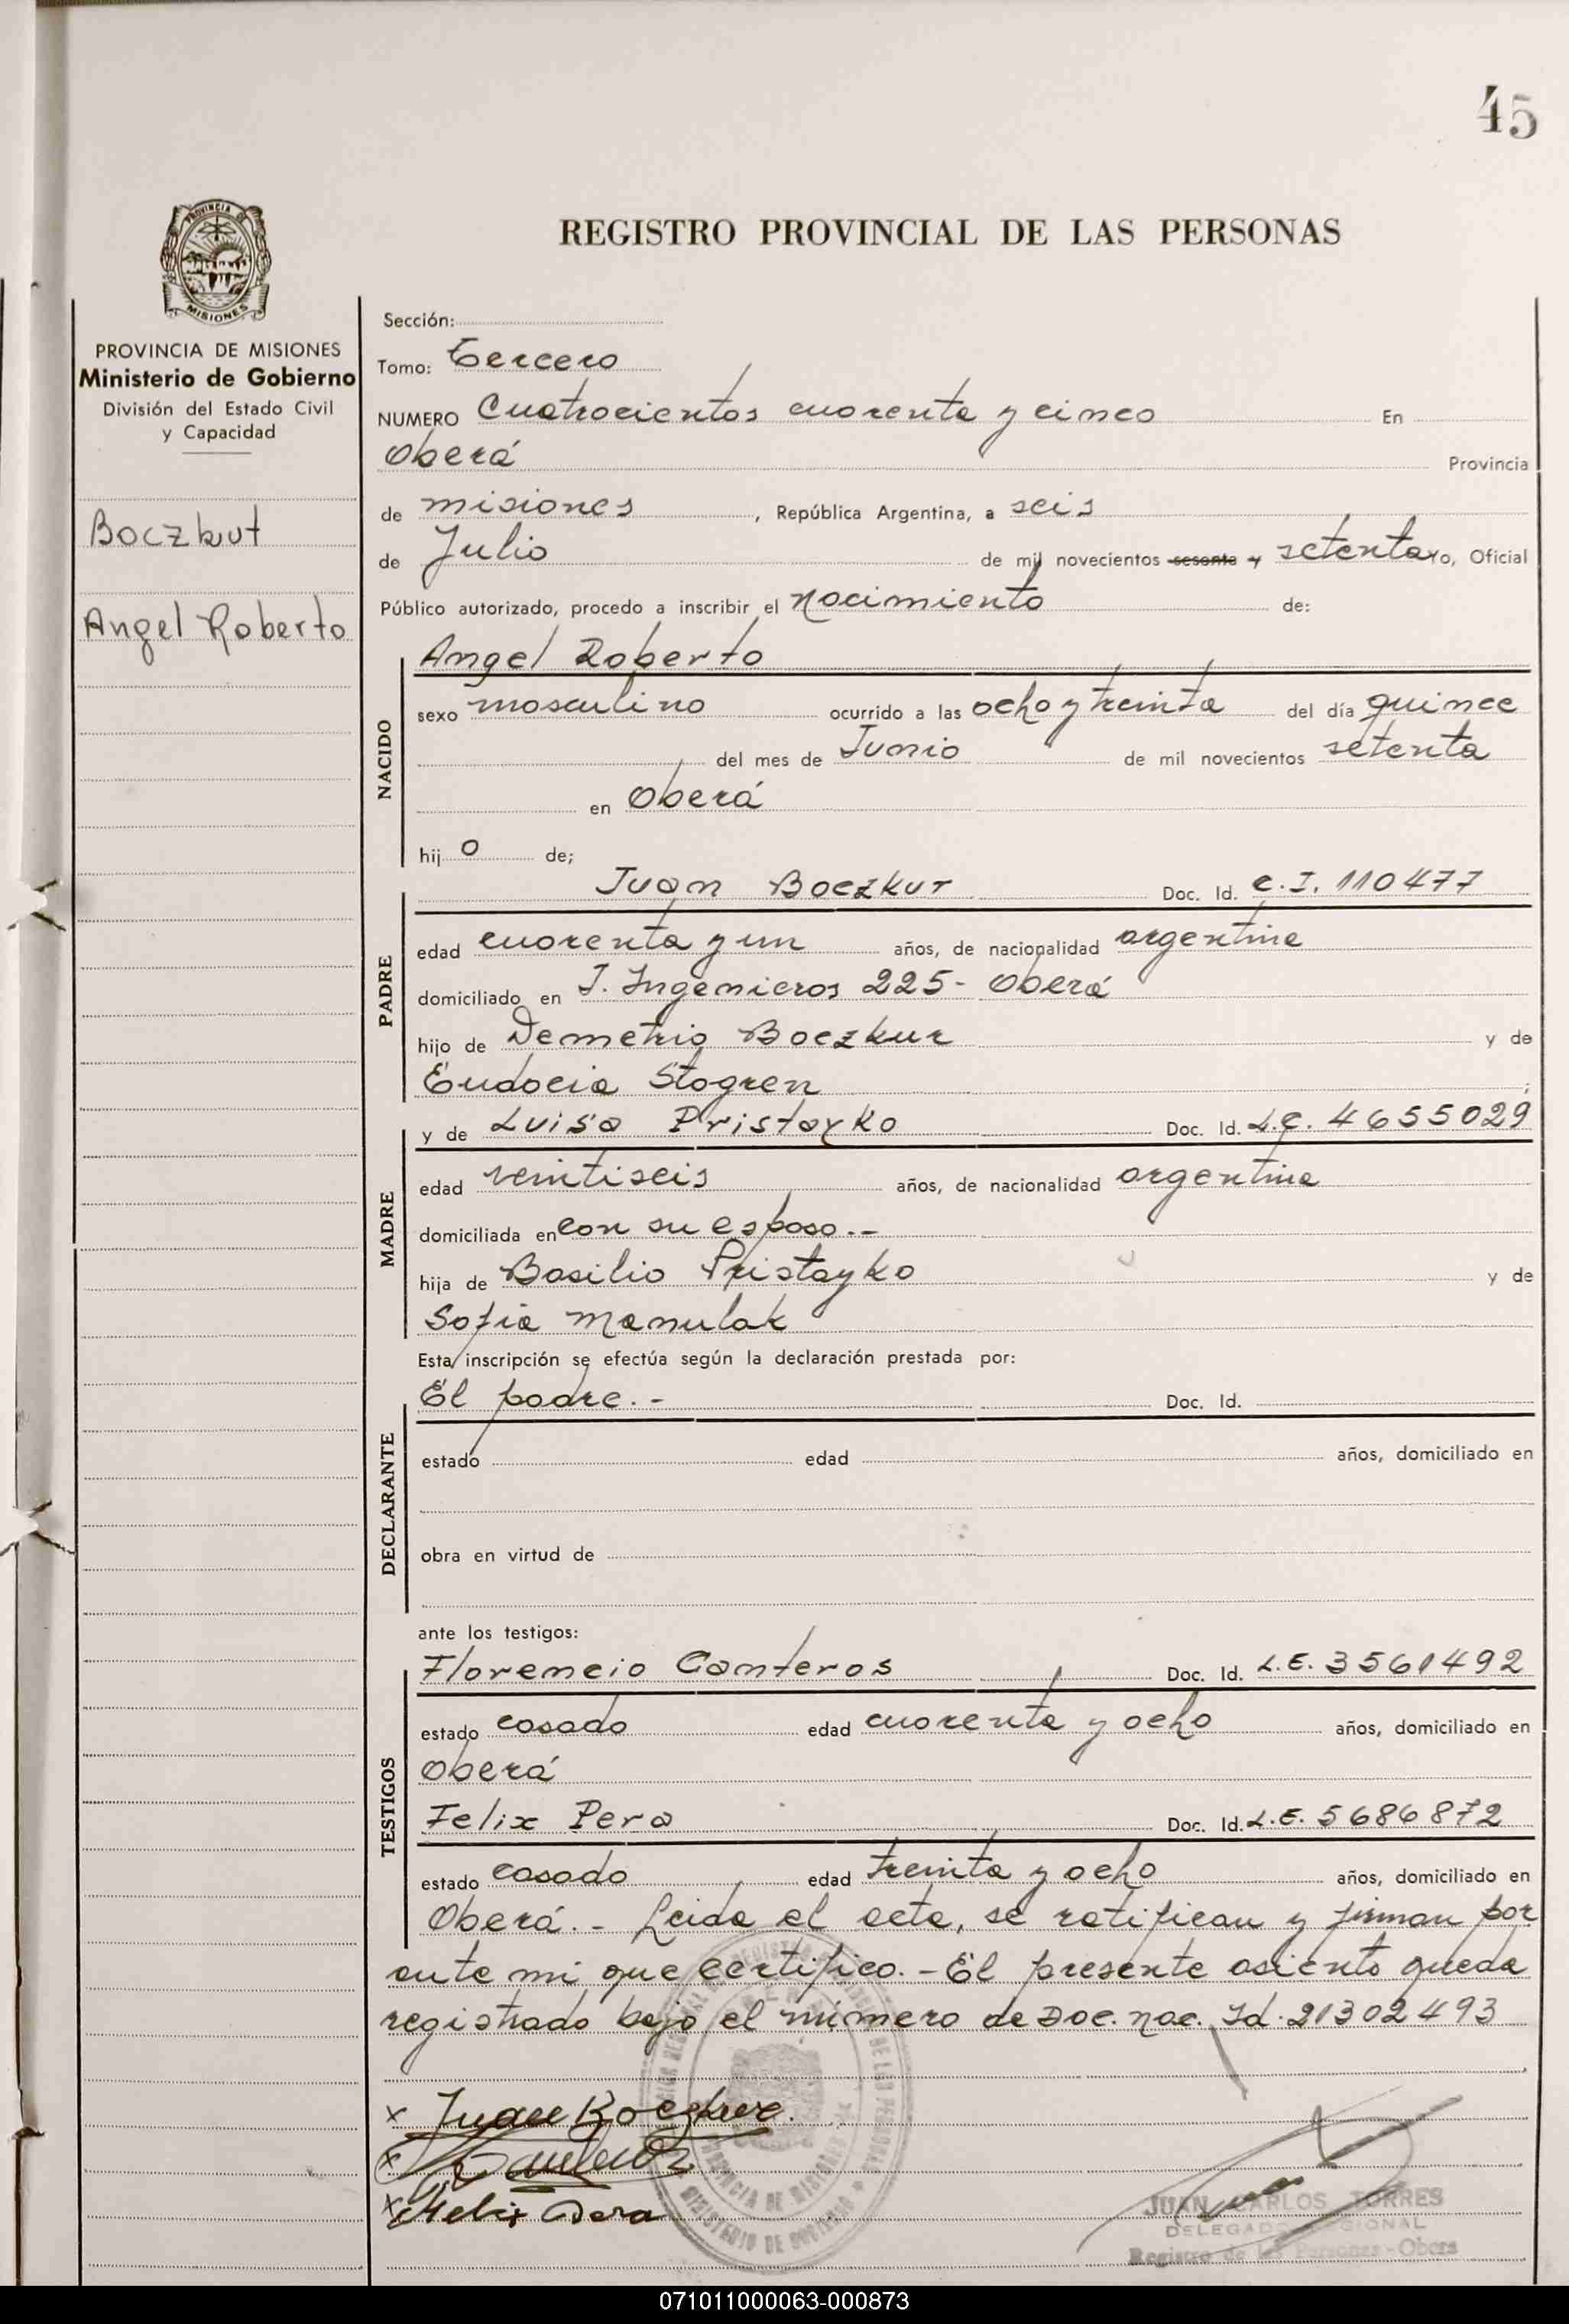 45
REGISTRO PROVINCIAL DE LAS PERSONAS
PROVINCIA DE MISIONES
PROVINCIA DE MISIONES
Ministerio de Gobierno
División del Estado Civil
y Capacidad
Boczkut
Angel Roberto
Sección:
Tomo: Tercero
NUMERO Cuatrocientos cuarenta y cinco En
Oberá Provincia
de misiones, República Argentina, a seis
de Julio de mil novecientos sesenta y setenta Yo, Oficial
Público autorizado, procedo a inscribir el nacimiento de:
NACIDO
Angel Roberto
sexo masculino ocurrido a las ocho y treinta del día quince
del mes de Junio de mil novecientos setenta
en Oberá
hij o de;
PADRE
Juan Boczkur Doc. Id. C.I. 110477
edad cuarenta y un años, de nacionalidad argentina
domiciliado en J. Ingenieros 225- Oberá
hijo de Demetrio Boczkur y de
Eudocia Stogren;
MADRE
y de Luisa Pristayko Doc. Id. L.C. 4655029
edad veintiseis años, de nacionalidad argentina
domiciliada en con su esposo.-
hija de Basilio Pristayko y de
Sofia Manulak
Esta inscripción se efectúa según la declaración prestada por:
DECLARANTE
El padre.- Doc. Id.
estado edad años, domiciliado en
obra en virtud de
ante los testigos:
TESTIGOS
Florencio Canteros Doc. Id. L.E. 3561492
estado casado edad cuarenta y ocho años, domiciliado en
Oberá
Felix Pera Doc. Id. L.E. 5686872
estado casado edad treinta y ocho años, domiciliado en
Oberá.- Leida el acta, se ratifican y firman por
ante mi que certifico.- El presente asiento queda
registrado bajo el número de Doc. nac. Id. 21302493
x Juan Boczkur.
x
x Felix Pera
JUAN CARLOS TORRES
DELEGADO REGIONAL
Registro de las Personas - Oberá
071011000063-000873